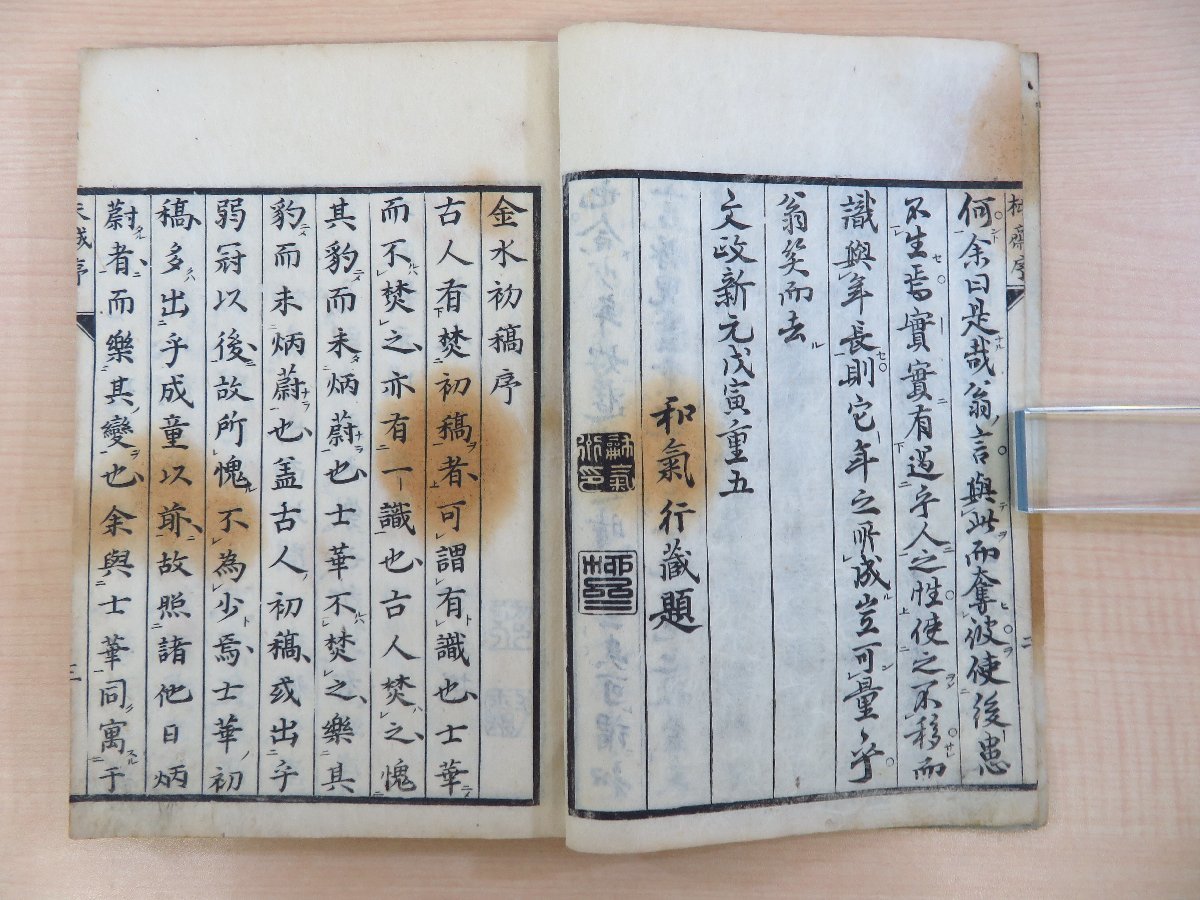 何余曰是哉翁言與此而奪彼使後患
不生焉實實有過乎人之性使之不移而
識與年長則它年之所成豈可量乎
翁笑而去
文政新元戊寅重五
和氣行藏題
金水初稿序
古人有焚初稿者可謂有識也士華
而不焚之亦有一識也古人焚之愧
其豹而未炳蔚也士華不焚之樂其
豹而未炳蔚也盖古人初稿或出乎
弱冠以後故所愧不為少焉士華初
稿多出乎成童以前故照諸他日炳
蔚者而樂其變也余與士華同寓于
三